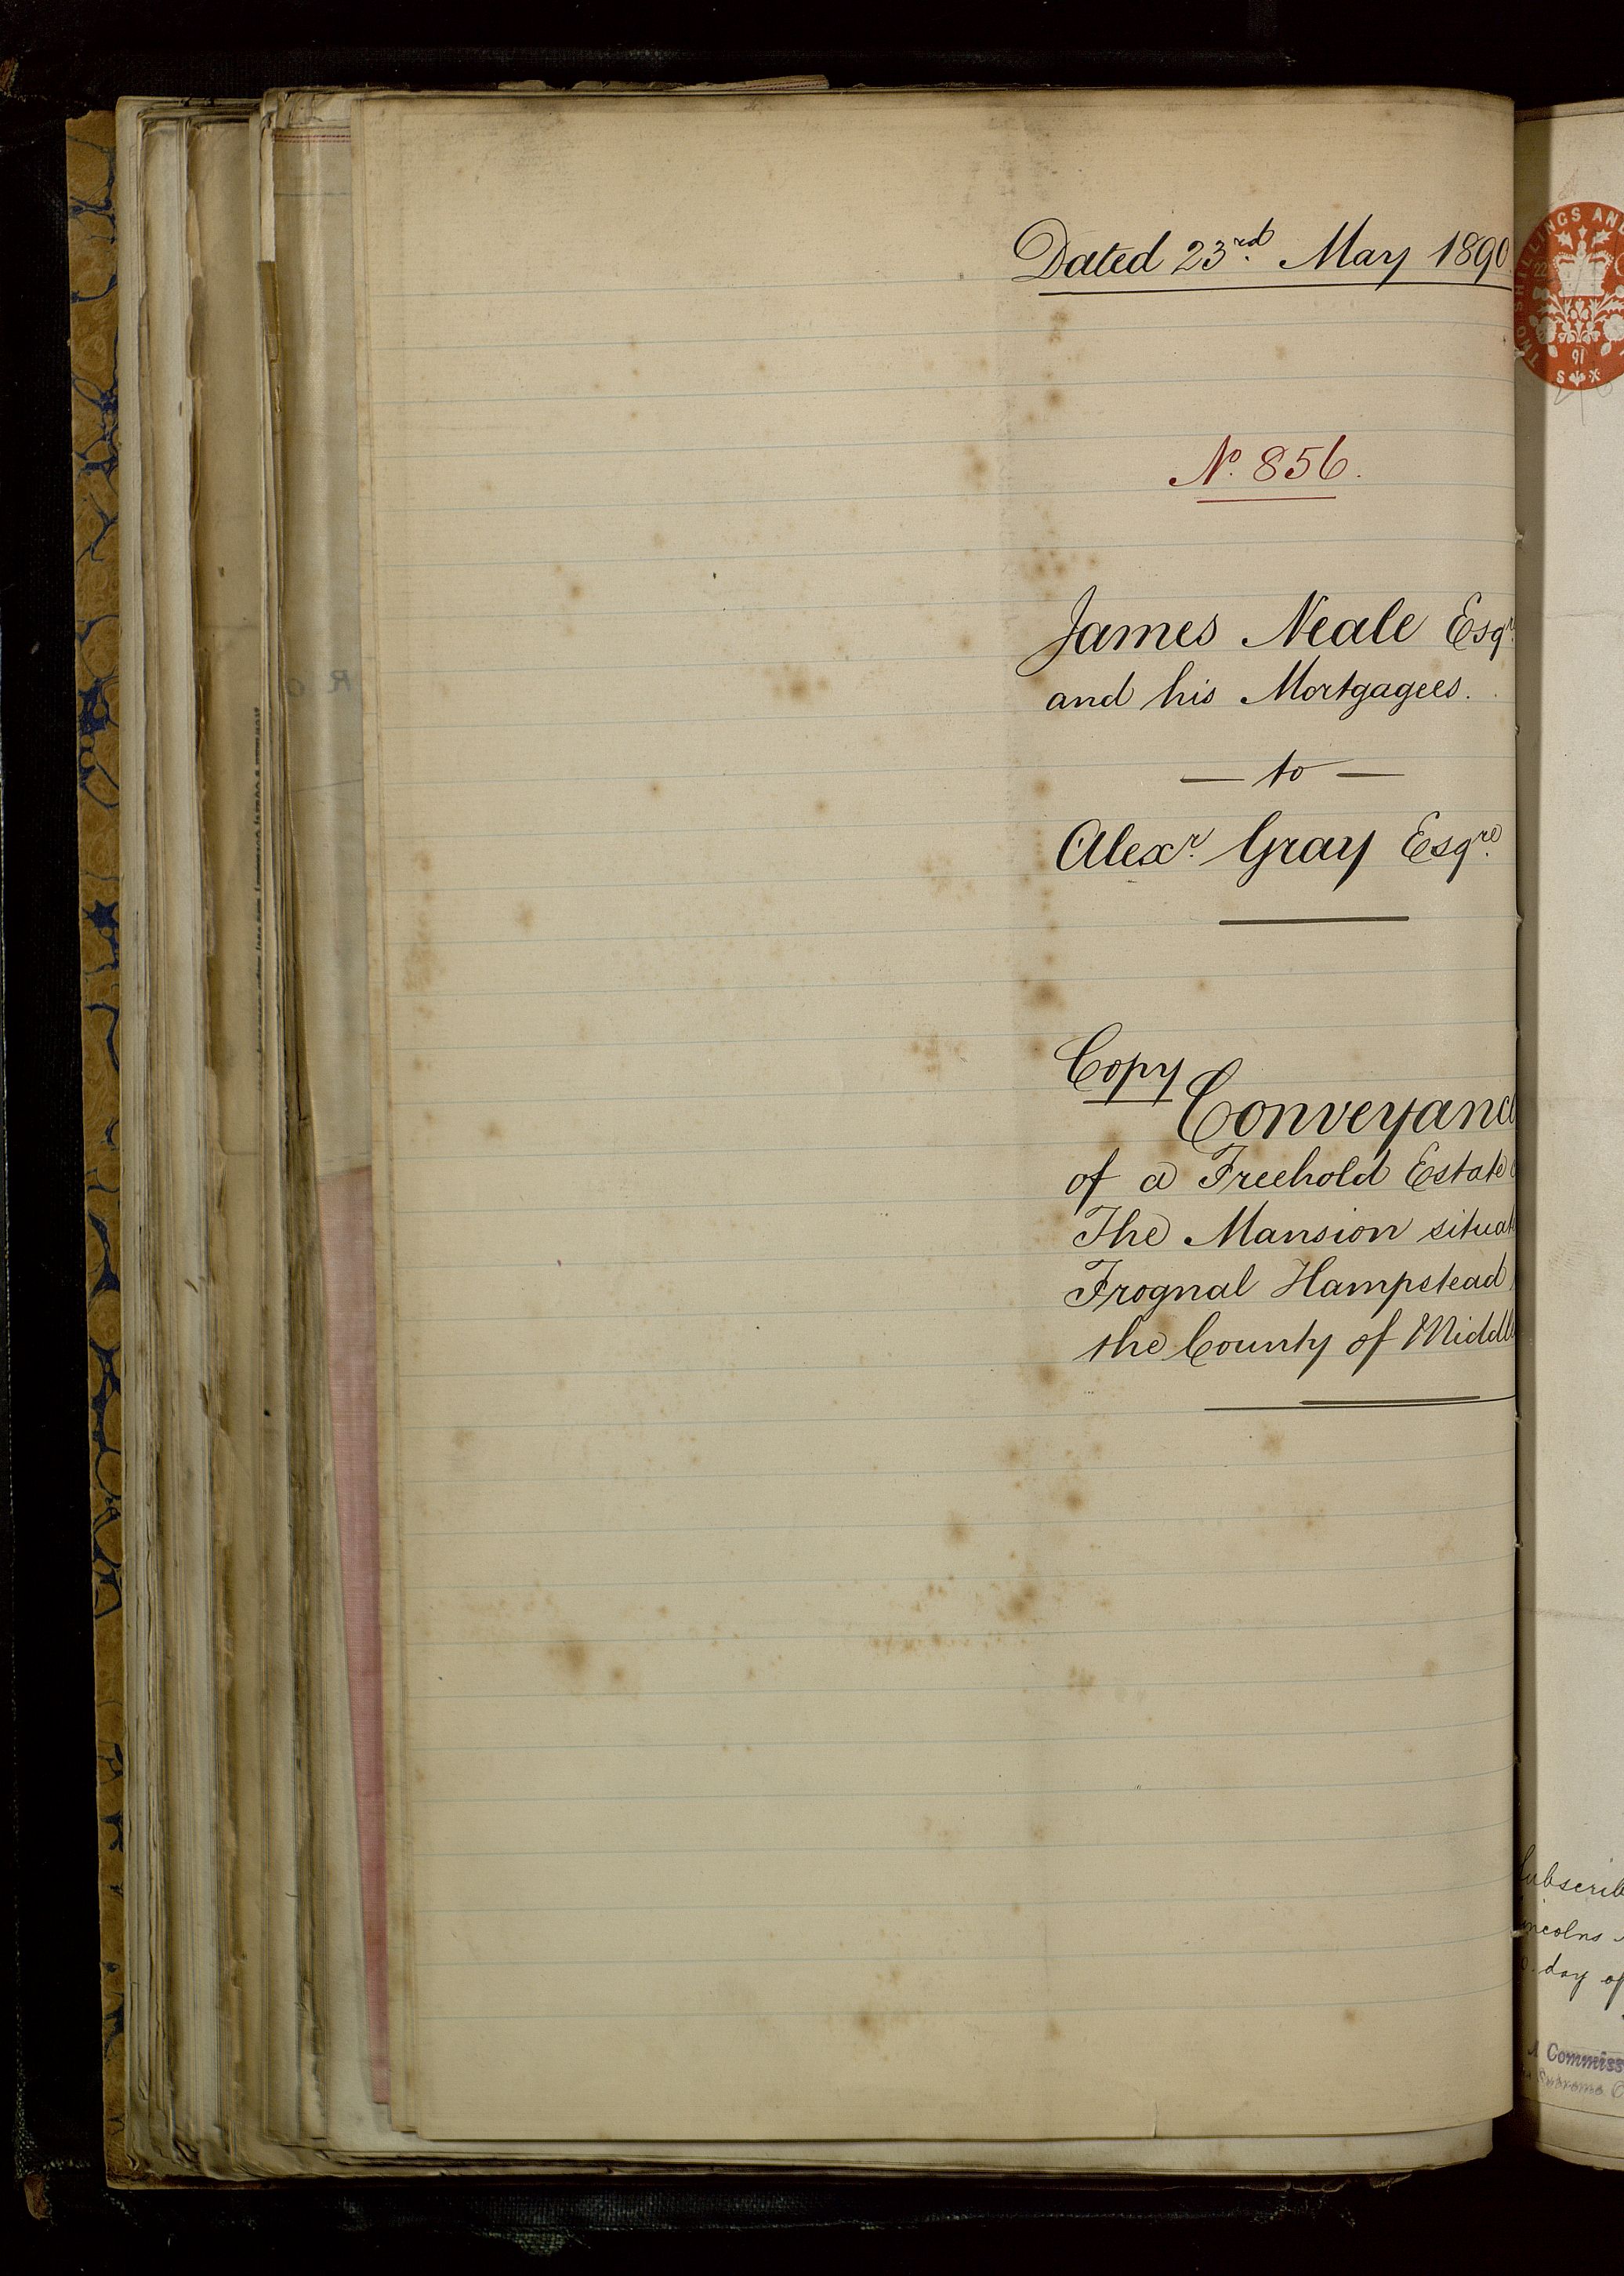 Dated 23rd. May 1890
No. 856.
James Neale Esqr.
and his Mortgagees.
— to —
Alexr. Gray Esqre.
Copy
Conveyanc
of a Freehold Estate
The Mansion situat
Frognal Hampstead
the County of Middl
TWO SHILLINGS AND
S
22
91
ubscrib
incolns
day of
A Commiss
Supreme C